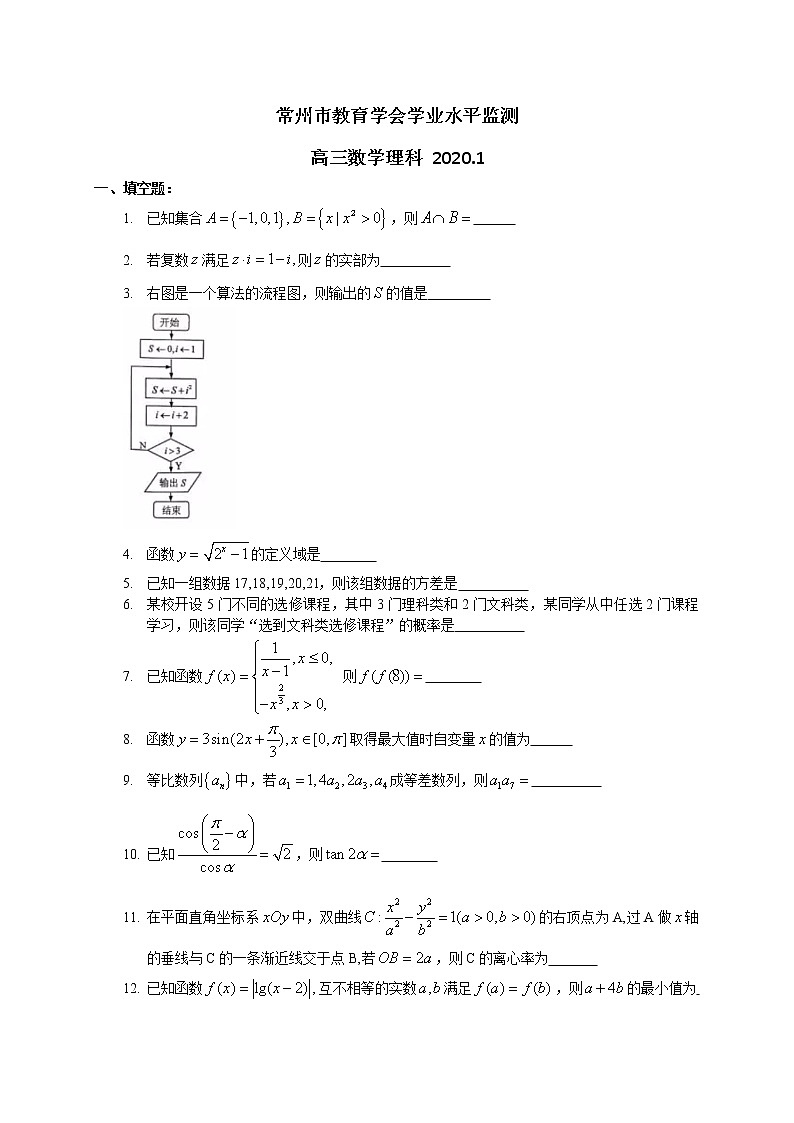 常州市教育学会学业水平监测
高三数学理科 2020.1
一、填空题：
1. 已知集合 A={-1,0,1}, B={x|x²>0}，则 A∩B=______
2. 若复数 z 满足 z·i=1-i,则 z 的实部为__________
3. 右图是一个算法的流程图，则输出的 S 的值是_________
开始
S←0,i←1
S←S+i²
i←i+2
N
i>3
Y
输出 S
结束
4. 函数 y=√(2^x-1) 的定义域是________
5. 已知一组数据 17,18,19,20,21，则该组数据的方差是__________
6. 某校开设 5 门不同的选修课程，其中 3 门理科类和 2 门文科类，某同学从中任选 2 门课程
学习，则该同学“选到文科类选修课程”的概率是__________
7. 已知函数 f(x)={1/(x-1), x≤0, -x^(2/3), x>0, 则 f(f(8))=________
8. 函数 y=3sin(2x+π/3), x∈[0,π] 取得最大值时自变量 x 的值为______
9. 等比数列{aₙ}中，若 a₁=1,4a₂,2a₃,a₄ 成等差数列，则 a₁a₇=__________
10. 已知 cos(π/2-α)/cosα=√2，则 tan 2α=________
11. 在平面直角坐标系 xOy 中，双曲线 C:x²/a²-y²/b²=1(a>0,b>0) 的右顶点为 A,过 A 做 x 轴
的垂线与 C 的一条渐近线交于点 B,若 OB=2a，则 C 的离心率为_______
12. 已知函数 f(x)=|lg(x-2)|, 互不相等的实数 a,b 满足 f(a)=f(b)，则 a+4b 的最小值为_